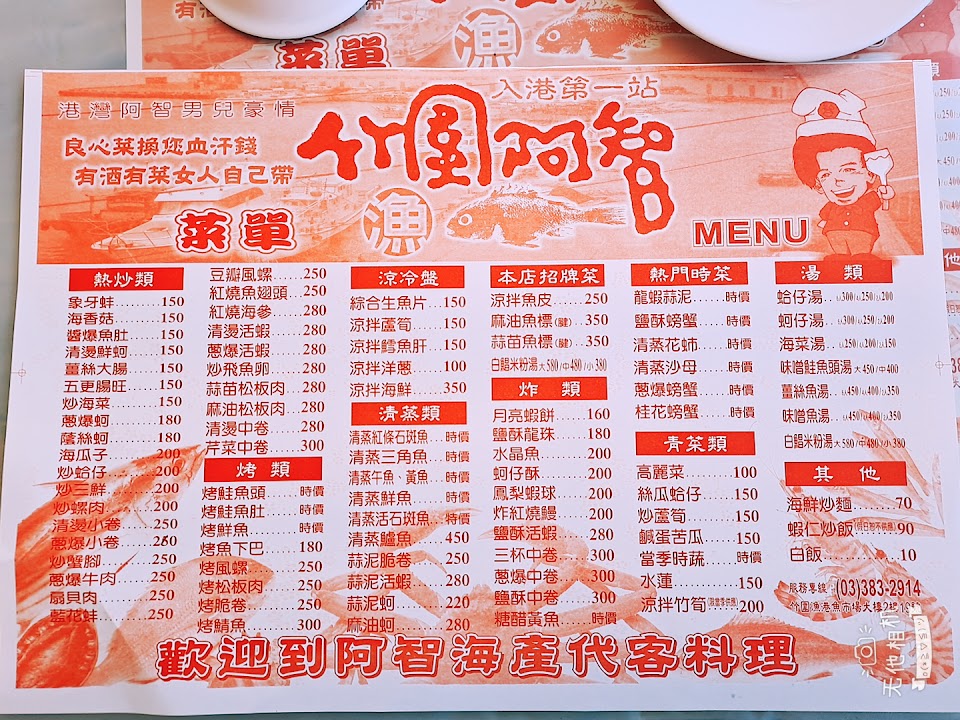 菜單
入港第一站
港灣阿智男兒豪情
竹圍阿智
良心菜換您血汗錢
有酒有菜女人自己帶
漁
菜單
MENU
熱炒類
象牙蚌......150
海香菇......150
醬爆魚肚......150
清燙鮮蚵......150
薑絲大腸......150
五更腸旺......150
炒海菜......150
蔥爆蚵......180
蔭絲蚵......180
海瓜子......200
炒蛤仔......200
炒三鮮......200
炒螺肉......200
清燙小卷......250
蔥爆小卷......250
炒蟹腳......250
蔥爆牛肉......250
扇貝肉......250
藍花蚌......250
豆瓣風螺......250
紅燒魚翅頭......250
紅燒海參......280
清燙活蝦......280
蔥爆活蝦......280
炒飛魚卵......280
蒜苗松板肉......280
麻油松板肉......280
清燙中卷......280
芹菜中卷......300
烤類
烤鮭魚頭......時價
烤鮭魚肚......時價
烤鮮魚......時價
烤魚下巴......180
烤風螺......250
烤松板肉......250
烤脆卷......250
烤鯖魚......300
涼冷盤
綜合生魚片...150
涼拌蘆筍......150
涼拌鱈魚肝...150
涼拌洋蔥......100
涼拌海鮮......350
清蒸類
清蒸紅條石斑魚...時價
清蒸三角魚......時價
清蒸午魚、黃魚...時價
清蒸鮮魚......時價
清蒸活石斑魚...特價
清蒸鱸魚......450
蒜泥脆卷......250
蒜泥活蝦......280
蒜泥蚵......220
麻油蚵......280
本店招牌菜
涼拌魚皮......250
麻油魚標(腱)...350
蒜苗魚標(腱)...350
白鯧米粉湯大580/中480/小380
炸類
月亮蝦餅......160
鹽酥龍珠......180
水晶魚......200
蚵仔酥......200
鳳梨蝦球......200
炸紅燒鰻......200
鹽酥活蝦......280
三杯中卷......300
蔥爆中卷......300
鹽酥中卷......300
糖醋黃魚......時價
熱門時菜
龍蝦蒜泥......時價
鹽酥螃蟹......時價
清蒸花蚺......時價
清蒸沙母......時價
蔥爆螃蟹......時價
桂花螃蟹......時價
青菜類
高麗菜......100
絲瓜蛤仔......150
炒蘆筍......150
鹹蛋苦瓜......150
當季時蔬......時價
水蓮......150
涼拌竹筍 200
湯類
蛤仔湯..大300/中250/小200
蚵仔湯..大300/中250/小200
海菜湯..大250/中200/小150
味噌鮭魚頭湯大500/中400
薑絲魚湯..大450/中400/小350
味噌魚湯..大450/中400/小350
白鯧米粉湯大580/中480/小380
其他
海鮮炒麵......70
蝦仁炒飯(假日恕不供應)90
白飯......10
服務專線 (03)383-2914
竹圍漁港魚市場大樓2樓
歡迎到阿智海產代客料理
无他相机